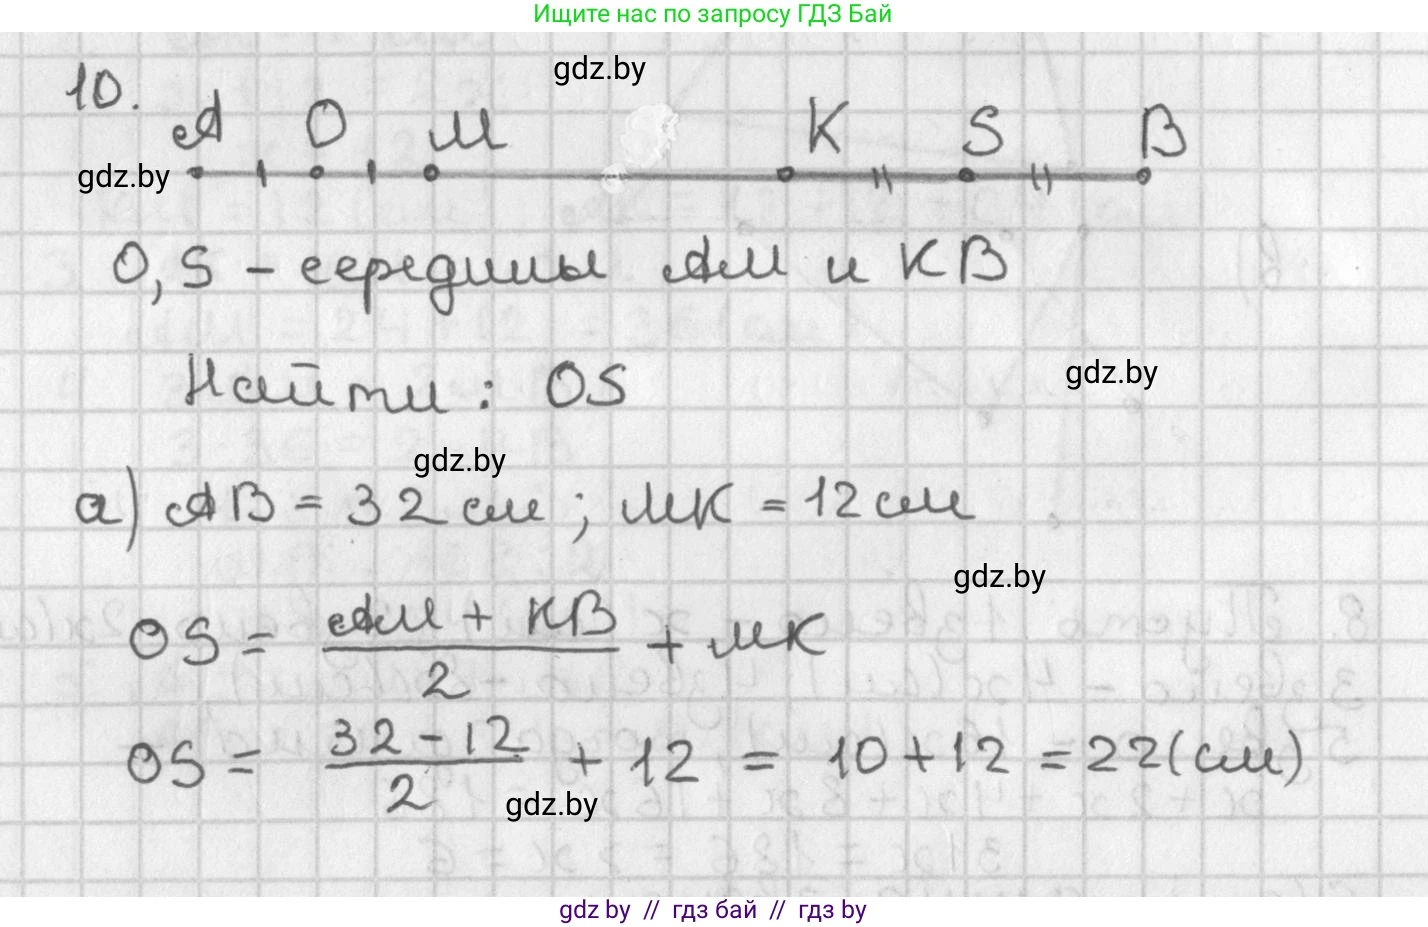 Ищите нас по запросу ГДЗ Бай
gdz.by
10.
А О М К S В
gdz.by
О, S - середины АМ и КВ
Найти: OS
gdz.by
gdz.by
а) АВ = 32 см; МК = 12 см
gdz.by
OS = (АМ + КВ)/2 + МК
OS = (32 - 12)/2 + 12 = 10 + 12 = 22 (см)
gdz.by
gdz by // гдз бай // гдз by